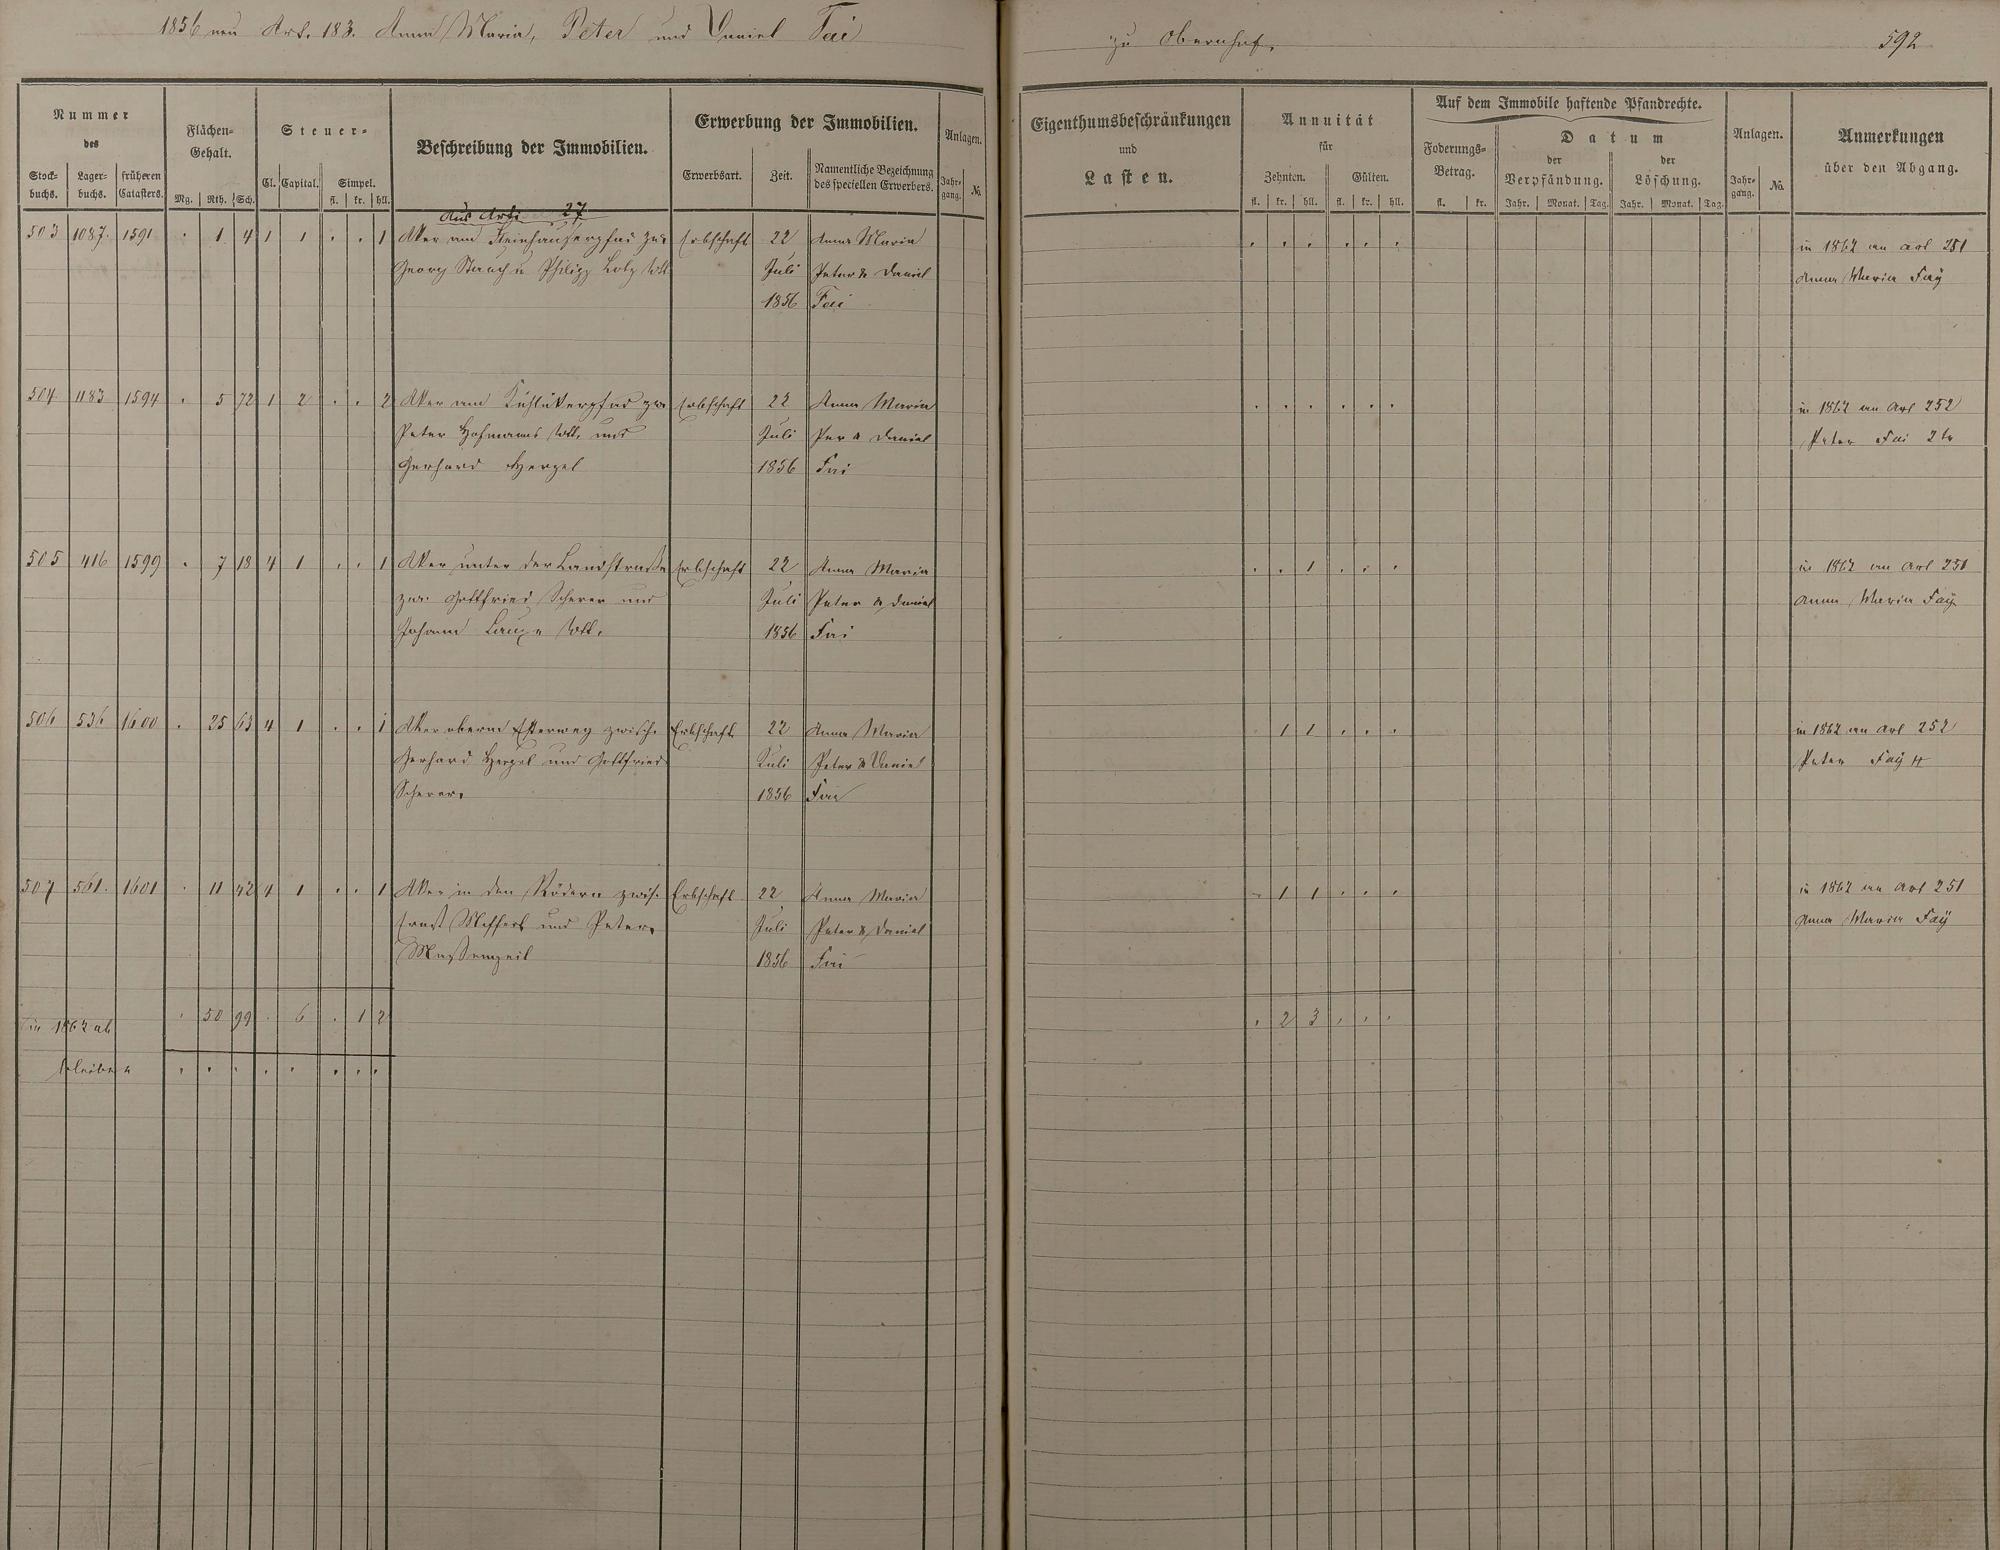 1856 neu Art. 183. Anna Maria, Peter und Daniel Fai
zu Obernhof.
592
Nummer
des
Stock-
buchs.
Lager-
buchs.
früheren
Catasters.
Flächen-
Gehalt.
Mg. Rth. Sch.
Steuer-
Cl. Capital. Simpel.
fl. kr. hll.
Beschreibung der Immobilien.
Erwerbung der Immobilien.
Erwerbsart. Zeit.
Namentliche Bezeichnung
des speciellen Erwerbers.
Anlagen.
Jahr-
gang. No.
Eigenthumsbeschränkungen
und
Lasten.
Annuität
für
Zehnten. Gülten.
fl. kr. hll. fl. kr. hll.
Auf dem Immobile haftende Pfandrechte.
Foderungs-
Betrag.
fl. kr.
Datum
der
Verpfändung.
der
Löschung.
Jahr. Monat. Tag. Jahr. Monat. Tag.
Anlagen.
Jahr-
gang. No.
Anmerkungen
über den Abgang.
Aus Arti 27
503 1087. 1591 . 1 4 1 1 . . 1 Aker am pfad zw. Erbschaft 22 Anna Maria . . . . . . in 1862 an art 251
Georg Stauch u Philipp Lotz Wtt. Juli Peter & Daniel Anna Maria Faÿ
1856 Fai
504 1183 1594 . 5 72 1 2 . . 2 Aker am pfad zw. Erbschaft 22 Anna Maria . . . . . . in 1862 an Art 252
Peter Hofmanns Wtt. und Juli Per & Daniel Peter Fai 2tr
Gerhard Hergel 1856 Fai
505 416 1599 . 7 18 4 1 . . 1 Aker unter der Landstraße Erbschaft 22 Anna Maria . . 1 . . . in 1862 an Art 251
zw. Gottfried Scherer und Juli Peter & Daniel Anna Maria Faÿ
Johann Wtt. 1856 Fai
506 536 1600 . 25 63 4 1 . . 1 Aker oberm Esterweg zwisch. Erbschaft 22 Anna Maria . 1 1 . . . in 1862 an Art 252
Gerhard Hergel und Gottfried Juli Peter & Daniel Peter Faÿ
Scherer. 1856 Fai
507 561. 1601 . 11 42 4 1 . . 1 Aker in den Rödern zwis. Erbschaft 22 Anna Maria . 1 1 . . . in 1862 an Art 251
Ernst und Peter Juli Peter & Daniel Anna Maria Faÿ
Massengeil 1856 Fai
in 1862 ab . 50 99 . 6 . 1 2 . 2 3 . . .
bleiben . . . . . . . .